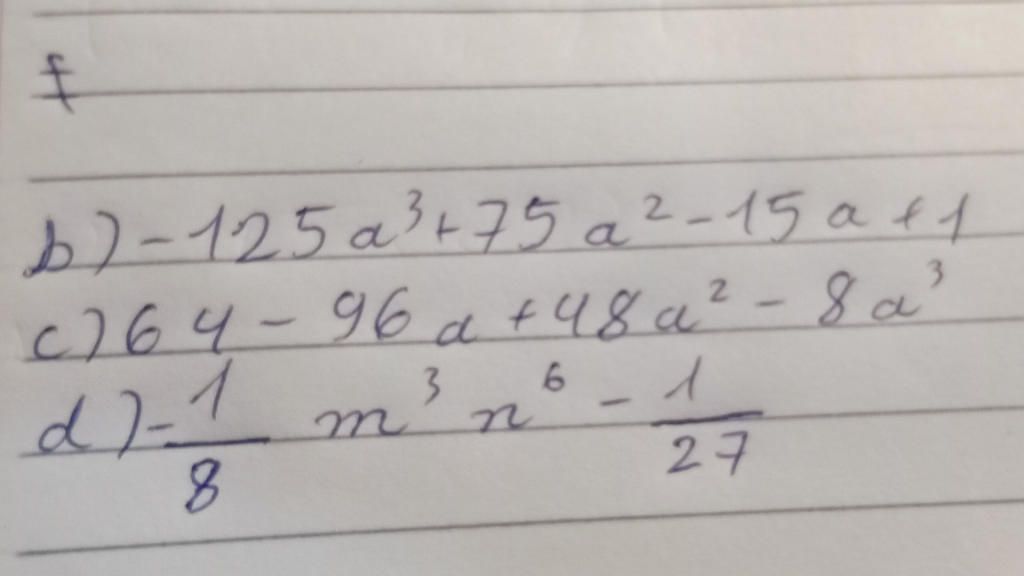 f
b) -125a³+75a²-15a+1
c) 64-96a+48a²-8a³
d) -1/8 m³n⁶ - 1/27